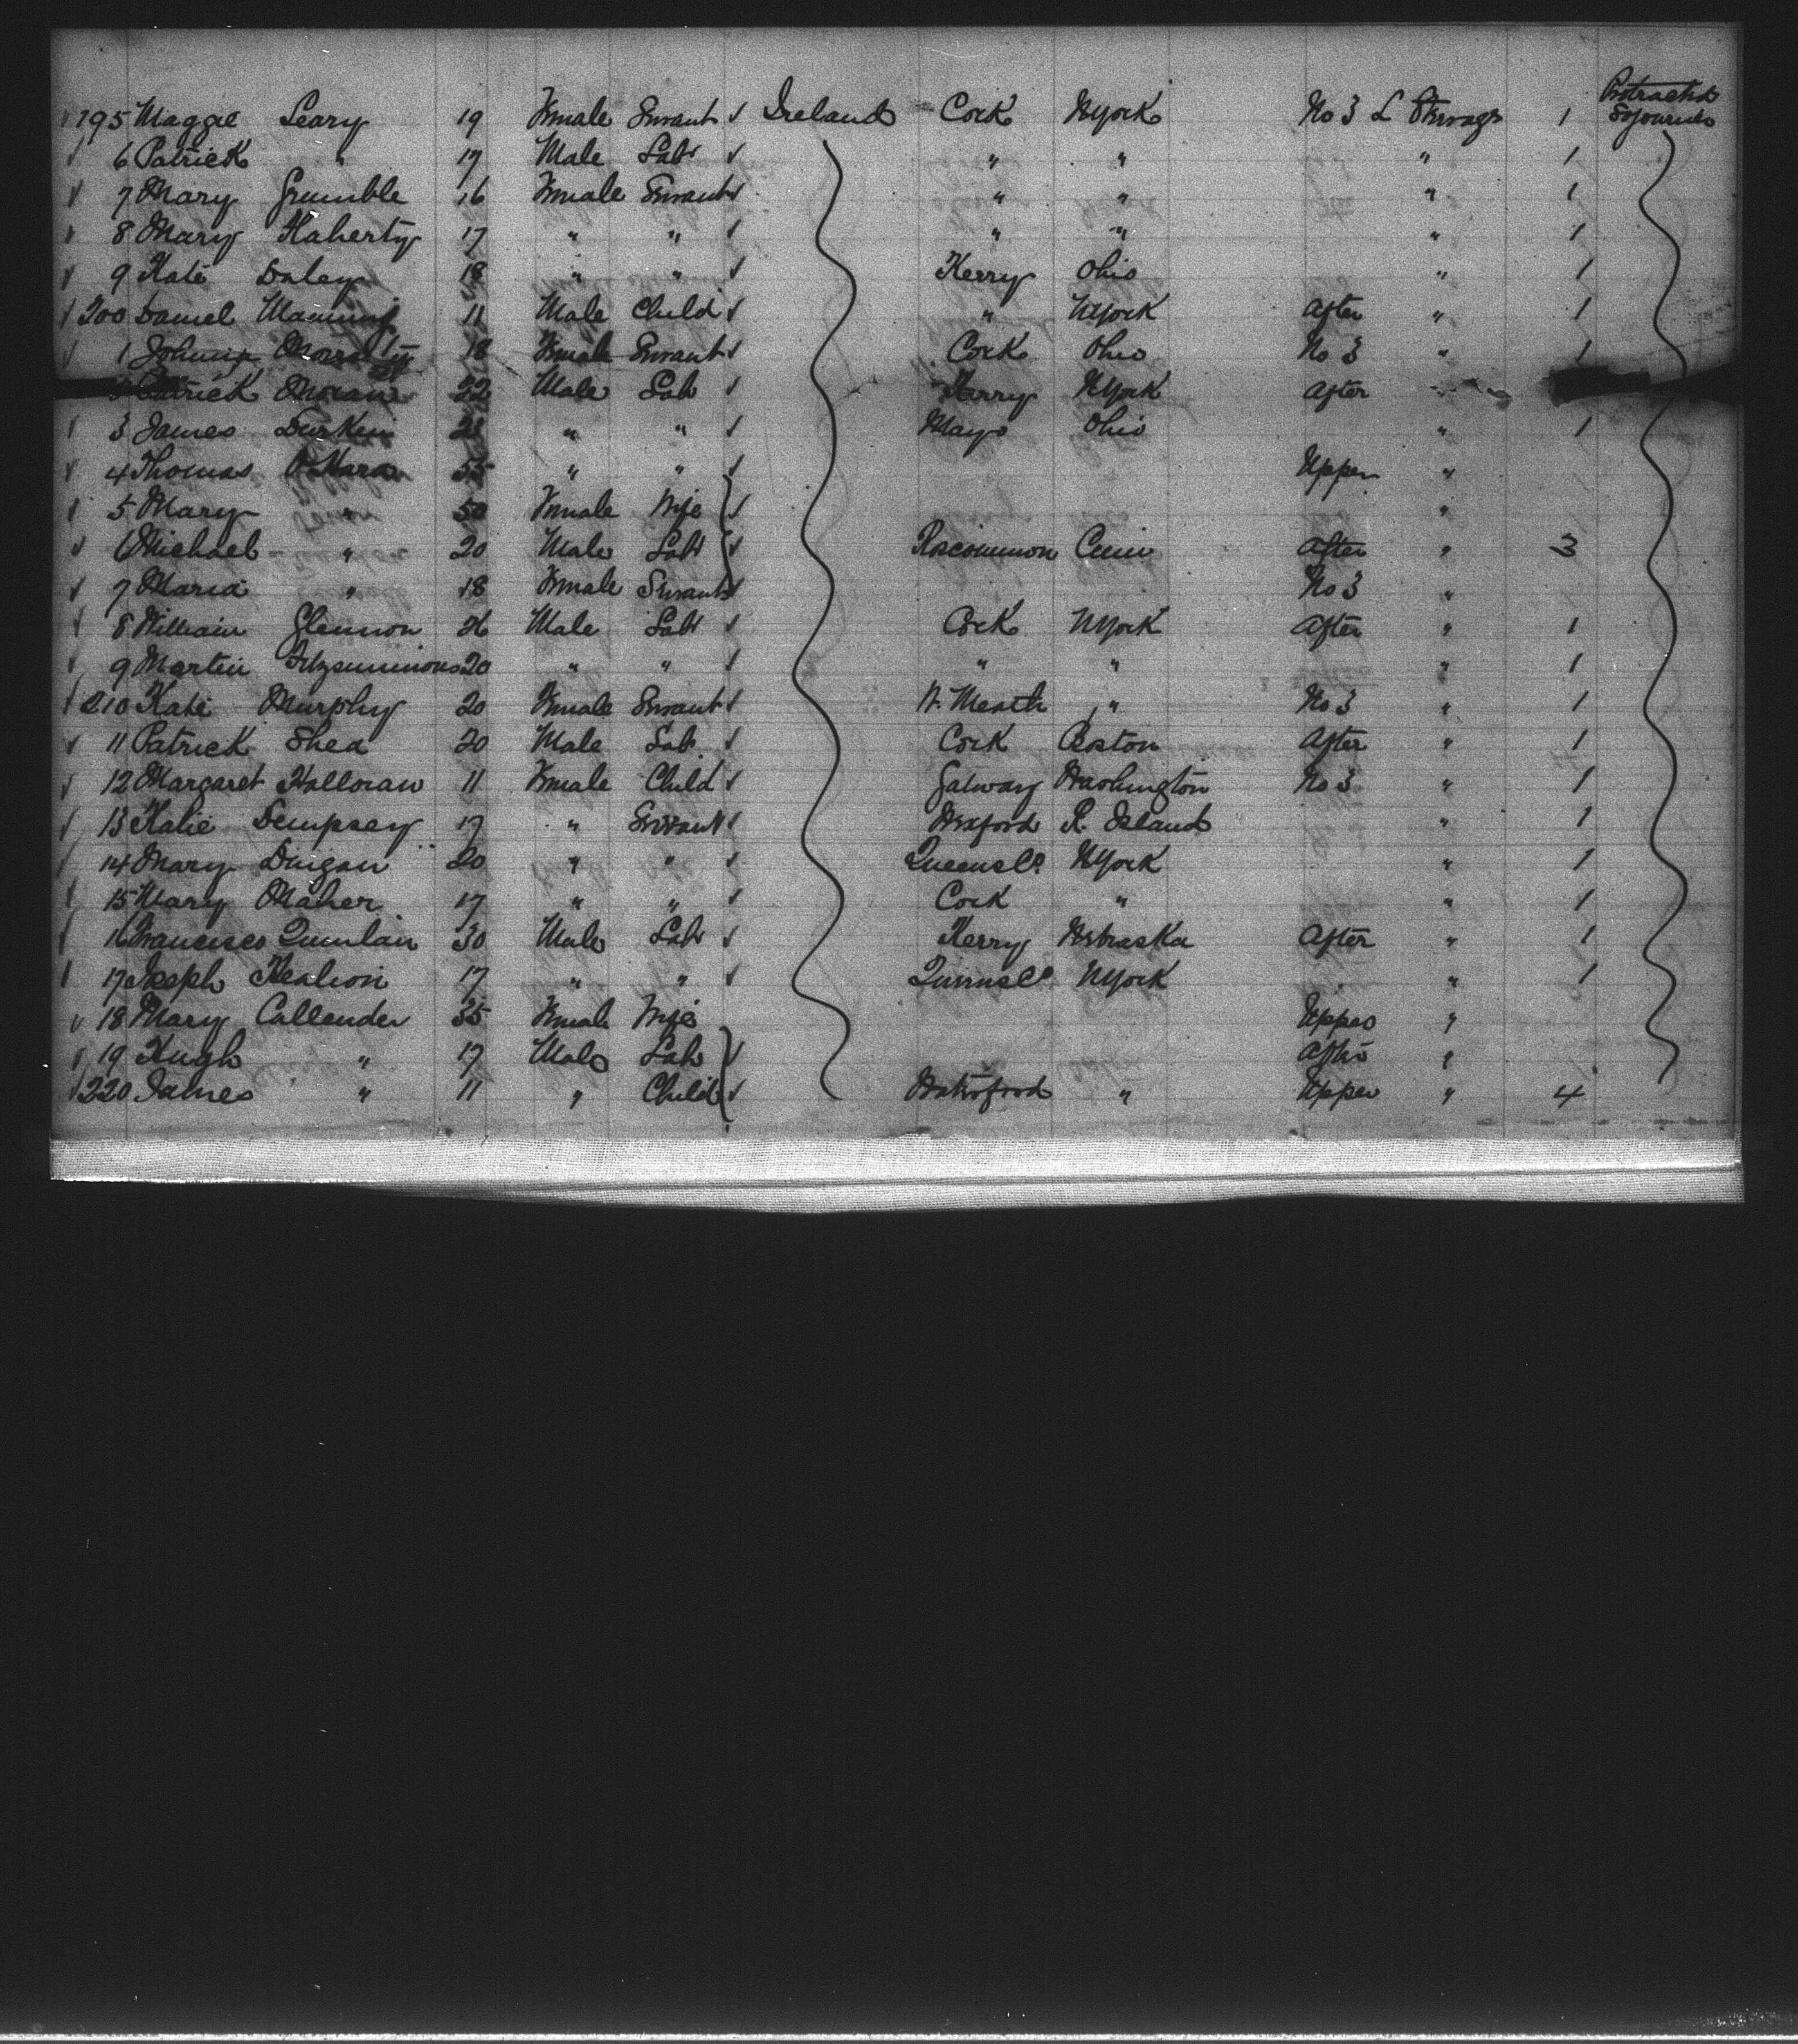 Protracted
195 Maggie Leary 19 Female Servant ✓ Ireland Cork NYork No 3 L Steerage 1 Sojourners
6 Patrick " 17 Male Lab ✓ " " " 1
7 Mary Grumble 16 Female Servant ✓ " " " 1
8 Mary Flaherty 17 " " ✓ " " " 1
9 Kate Daley 18 " " ✓ Kerry Ohio " 1
200 Daniel Manning 11 Male Child ✓ " NYork After " 1
1 18 Female Servant ✓ Cork Ohio No 3 " 1
Patrick Moran 22 Male Lab ✓ Kerry NYork After "
3 James Durkin ✓ " " Mayo Ohio " 1
4 Thomas O'Hara 55 " " ✓ Upper "
5 Mary " 50 Female Wife ✓ "
6 Michael " 20 Male Lab ✓ Roscommon After " 3
7 Maria " 18 Female Servant ✓ No 3 "
8 William Glennon 26 Male Lab ✓ Cork NYork After " 1
9 Martin Fitzsimmons 20 " " ✓ " " " 1
210 Kate Murphy 20 Female Servant ✓ W. Meath " No 3 " 1
11 Patrick Shea 20 Male Lab ✓ Cork Boston After " 1
12 Margaret Halloran 11 Female Child ✓ Galway Washington No 3 " 1
13 Katie Dempsey 17 " Servant ✓ Wexford R. Island " 1
14 Mary 20 " " ✓ Queens Co. NYork " 1
15 Mary Maher 17 " " ✓ Cork " " 1
16 Francisco Quinlan 30 Male Lab ✓ Kerry Nebraska After " 1
17 Joseph 17 " " ✓ Queens Co NYork " 1
18 Mary Callender 35 Female Wife Upper "
19 Hugh " 17 Male Lab ✓ After "
220 James " 11 " Child ✓ Waterford " Upper " 4